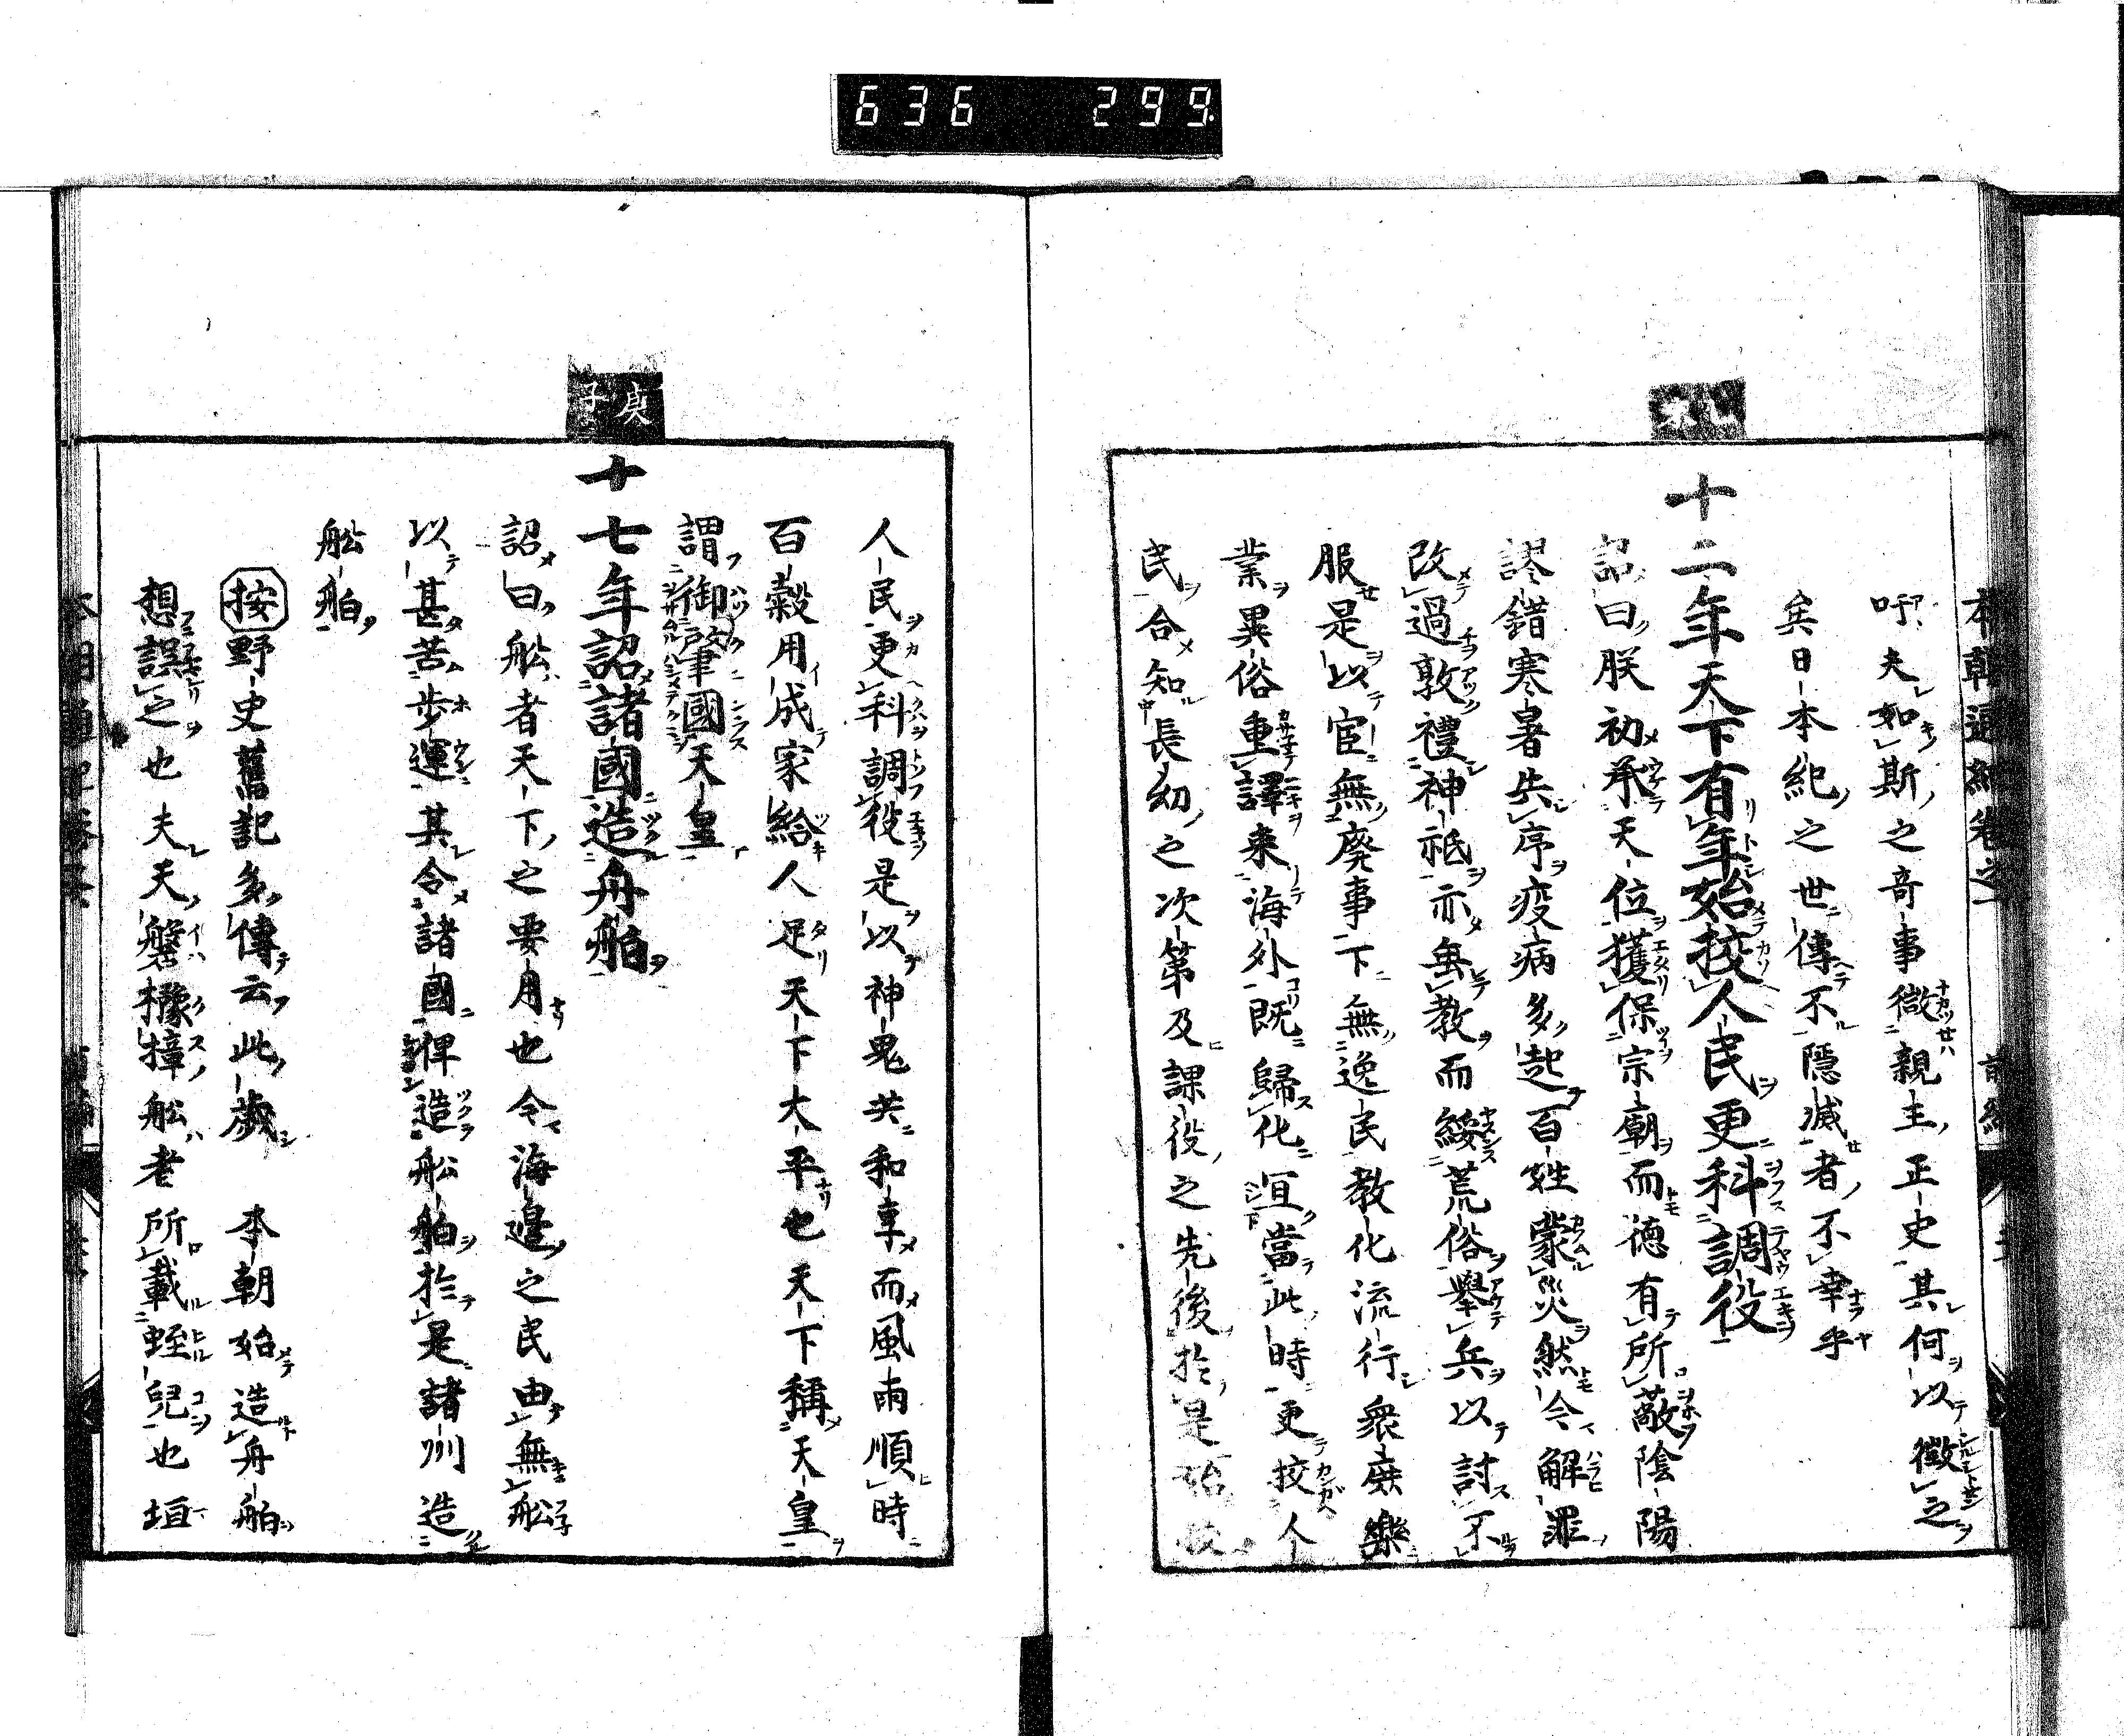 636 299
吁夫如斯之奇事微親王正史其何以徵之
矣日本紀之世傳不隱滅者不幸乎
十二年天下有年始挍人民更科調役
詔曰朕初承天位獲保宗廟而德有所蔽陰陽
謬錯寒暑失序疫病多起百姓蒙災然今解罪
改過敦禮神祇亦垂教而綏荒俗舉兵以討不
服是以官無廢事下無逸民教化流行衆庶樂
業異俗重譯来海外既歸化宜當此時更挍人
民合知長幼之次第及課役之先後於是始挍
人民更科調役是以神鬼共和享而風雨順時
百穀用成家給人足天下大平也天下稱天皇
謂御肇國天皇
庚子
十七年詔諸國造舟舶
詔曰舩者天下之要用也今海邊之民由無舩
以甚苦步運其令諸國俾造舩舶於是諸州造
舩舶
按野史舊記多傳云此歲 本朝始造舟舶
想誤之也夫天磐櫲樟舩者所載蛭兒也垣